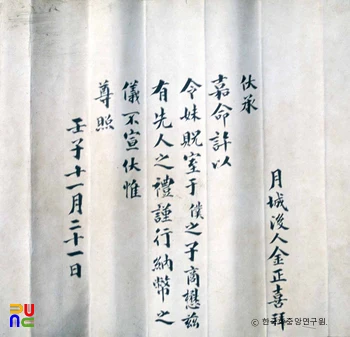 月城後人金正喜拜
伏承
嘉命許以
令妹貺室于僕之子商懋玆
有先人之禮謹行納幣之
儀不宣伏惟
尊照
壬子十一月二十一日
© 한국학중앙연구원